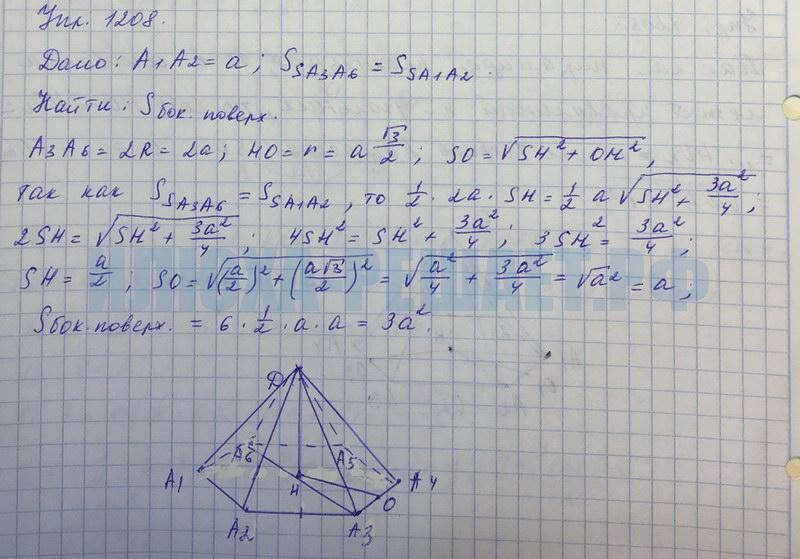 Упр. 1208.
Дано: A1A2 = a; S_SA3A6 = S_SA1A2.
Найти: Sбок. поверх.
A3A6 = 2R = 2a; HO = r = a √3/2; SO = √(SH² + OH²),
так как S_SA3A6 = S_SA1A2, то 1/2 · 2a · SH = 1/2 a √(SH² + 3a²/4);
2SH = √(SH² + 3a²/4); 4SH² = SH² + 3a²/4; 3SH² = 3a²/4;
SH = a/2; SO = √((a/2)² + (a√3/2)²) = √(a²/4 + 3a²/4) = √a² = a;
Sбок. поверх. = 6 · 1/2 · a · a = 3a².
D
A6
A5
A1
H
A4
O
A2
A3